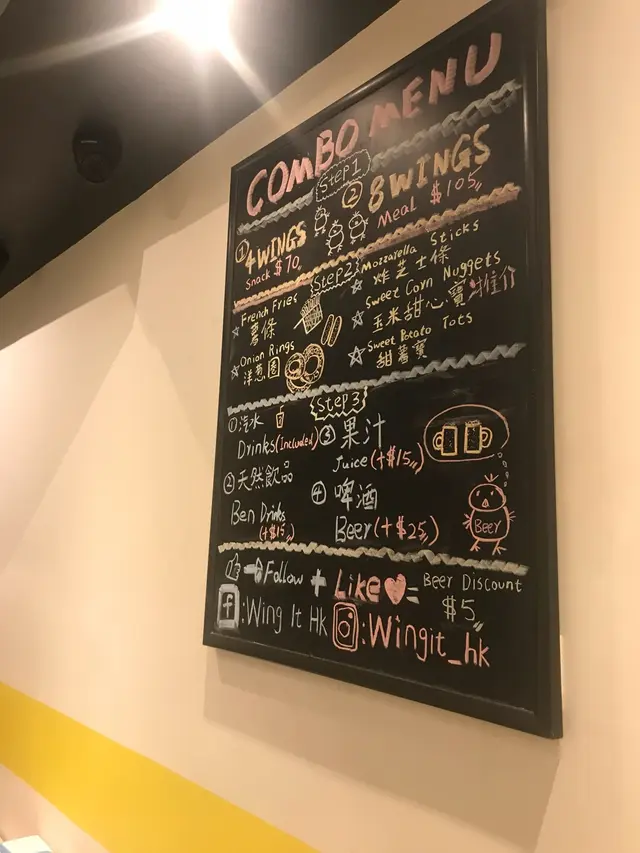 COMBO MENU
Step 1
① 4 WINGS
Snack $70
② 8 WINGS
Meal $105
Step2
☆ French Fries
薯條
☆ Onion Rings
洋葱圈
☆ Mozzarella Sticks
炸芝士條
☆ Sweet Corn Nuggets
玉米甜心寶 推介
☆ Sweet Potato Tots
甜薯寶
Step3
① 汽水
Drinks (Included)
② 天然飲品
Ben Drinks
(+$15)
③ 果汁
Juice (+$15)
④ 啤酒
Beer (+$25)
BEER
Follow + Like = Beer Discount
$5
f : Wing It HK
: Wingit_hk